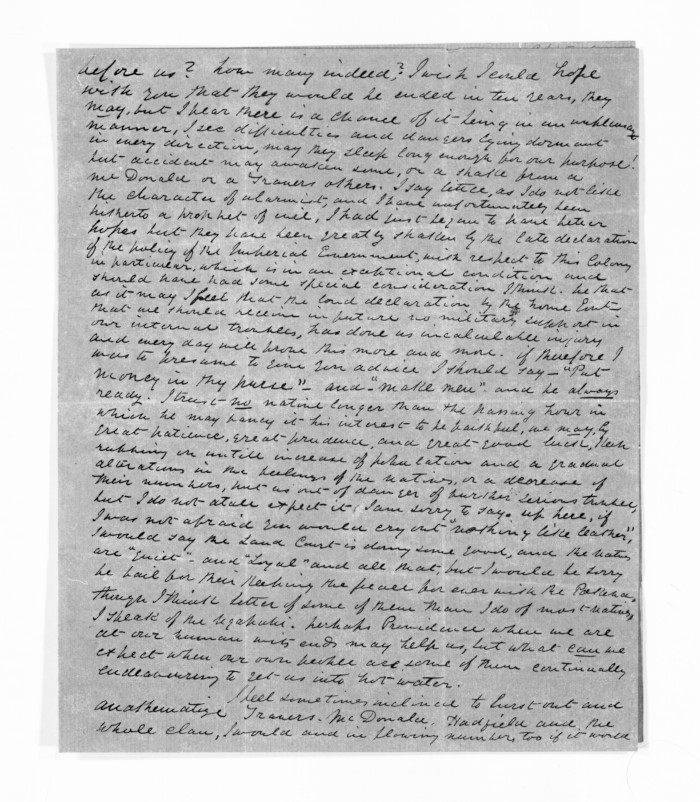 before us? how many indeed? I wish I could hope
with you that they would be ended in ten years, they
may, but I fear there is a chance of it being in an unpleasant
manner, I see difficulties and dangers lying dormant
in every direction, may they sleep long enough for our purpose!
but accident may awaken some, or a shake from a
Mc Donald or a Travers others. I say little, as I do not like
the character of alarmist, and I have unfortunately been
hitherto a prophet of evil, I had just began to have better
hopes but they have been greatly shaken by the late declaration
of the policy of the Imperial Government, with respect to this Colony
in particular, which is in an exceptional condition and
should have had some special consideration I think. be that
as it may I feel that the loud declaration by the home Govt-
that we should receive in future no military support in
our internal troubles, has done us incalculable injury
and every day will prove this more and more. if therefore I
was to presume to give you advice I should say - "Put
money in thy purse" - and - "make men" and be always
ready. I trust no native longer than the passing hour in
which he may fancy it his interest to be faithful, we may, by
great patience, great prudence, and great good luck, keep
rubbing on untill increase of population and a gradual
alteration in the feelings of the natives, or a decrease of
their numbers, put us out of danger of further serious trouble,
but I do not atall expect it I am sorry to say. up here, if
I was not afraid you would cry out "nothing like leather",
I would say the Land Court is doing some good, and the natives
are "quiet" - and "Loyal" and all that, but I would be sorry
be bail for their keeping the peace for ever with the Pakeha,
though I think better of some of them than I do of most natives
I speak of the Ngapuhi. perhaps Providence when we are
at our human wits ends may help us, but what can we
expect when our own people are some of them continually
endeavouring to get us into hot water.
I feel sometimes inclined to burst out and
anathematize Travers. Mc Donald. Hadfield and the
whole clan, I would and in flowing numbers too if it would